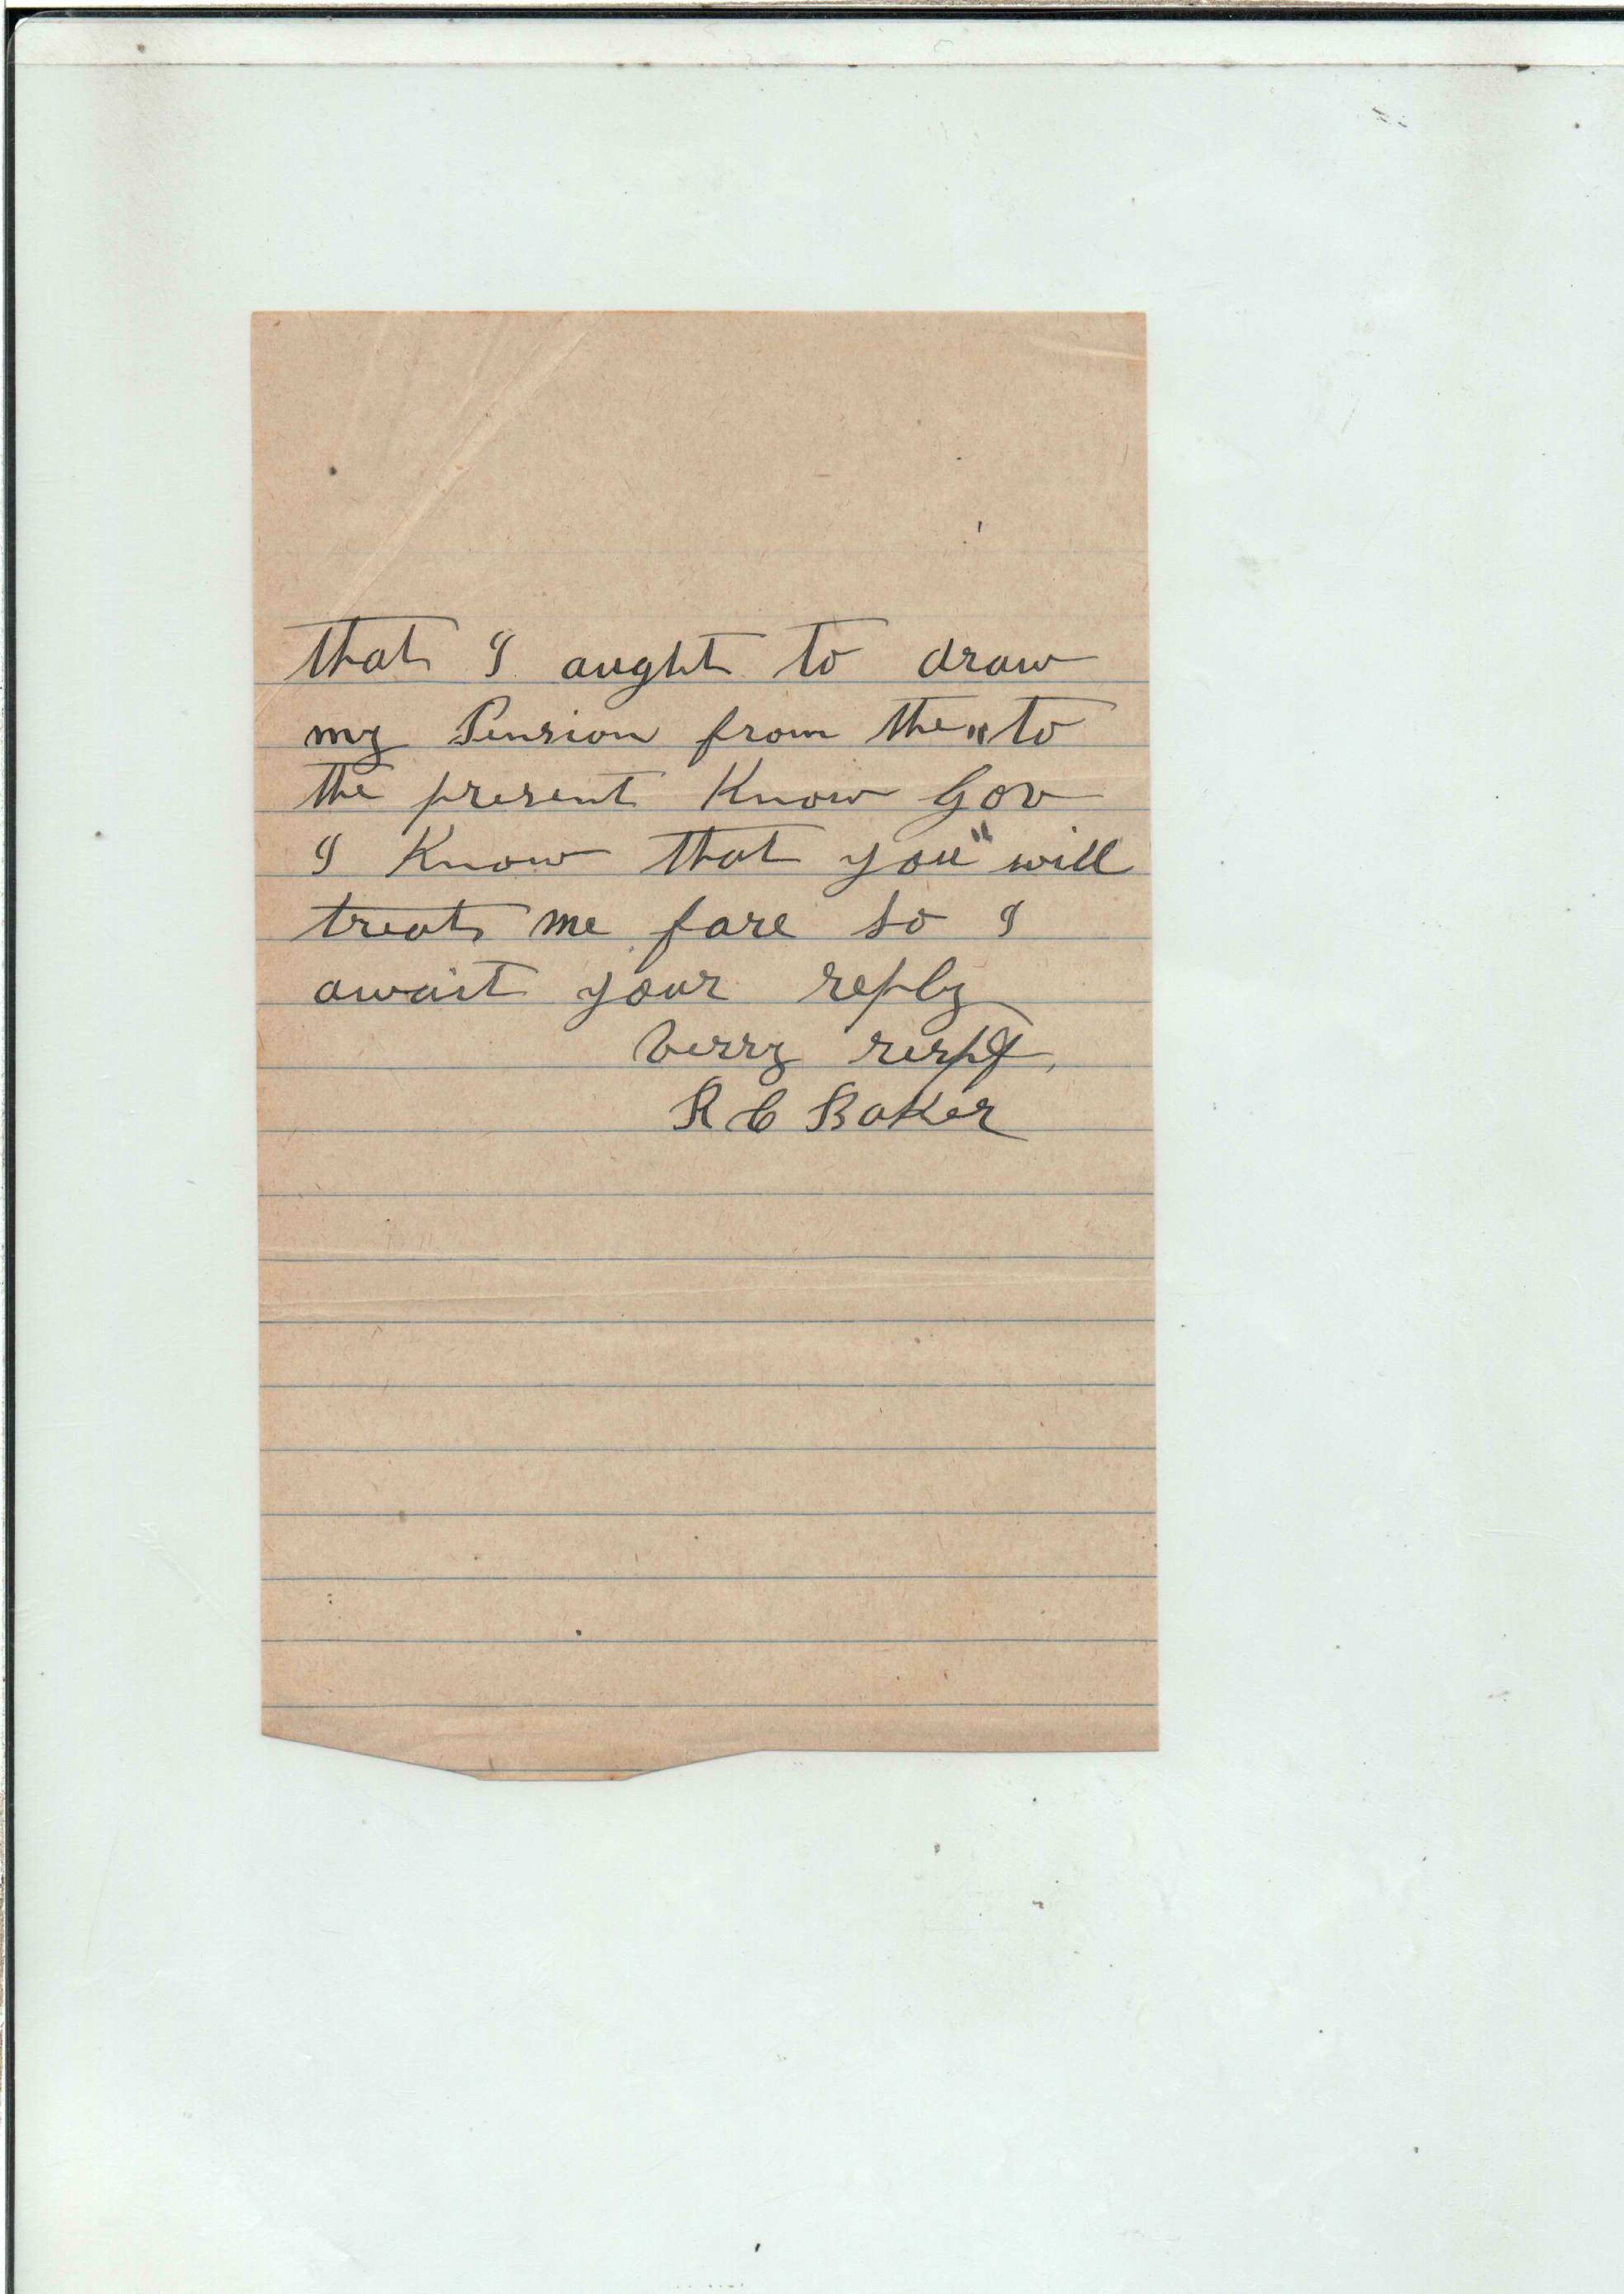 that I aught to draw
my Pension from the " to
the present Know Gov
I Know that you " will
treat me fare so I
await your reply
verry respf,
R C Baker